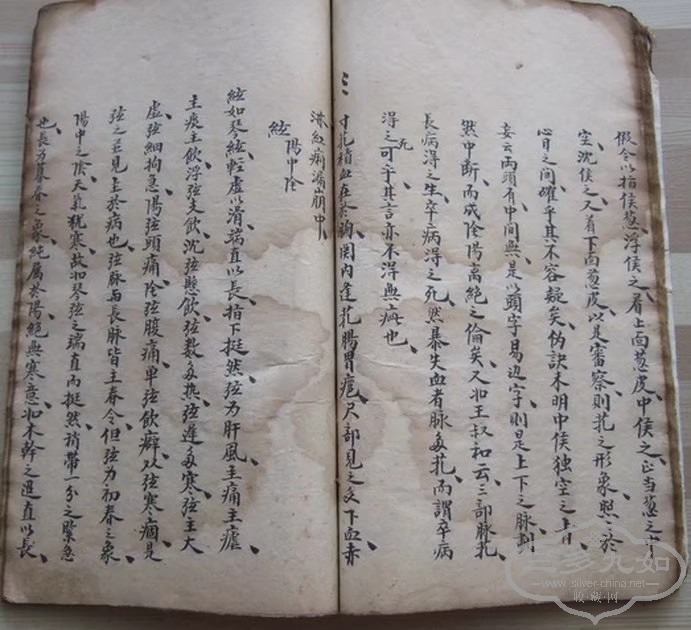 假令以指候葱浮候之着上面葱皮中候之正当葱之中
空沈候之又着下面葱皮以是審察則芤之形象照〻於
心目之間確乎其不容疑矣伪訣未明中候独空之上旨
妄云两頭有中間無是以頭字易边字則是上下之脉劃
然中断而成陰陽离绝之倫矣又如王叔和云三部脉芤
長病得之生卒病得之死然暴失血者脉多芤而謂卒病
得之死可乎其言亦不得無疵也
寸芤積血在於胸関内逢芤腸胃疮尺部見之多下血赤
淋红痢漏崩中
弦 陽中陰
弦如琴絃輕虚以滑端直以長指下挺然弦为肝風主痛主瘧
主痰主飲浮弦支飲沈弦懸飲弦数多热弦遲多寒弦主大
虚弦細拘急陽弦頭痛陰弦腹痛单弦飲癖双弦寒痼是
弦之筮見主於病也弦脉与長脉皆主春令但弦为初春之象
陽中之陰天氣犹寒故如琴弦之端直而挺然稍帶一分之緊急
也長为暮春之象純属於陽絕無寒意如木幹之迢直以長
三多九如
www.silver-china.net
收·藏·网